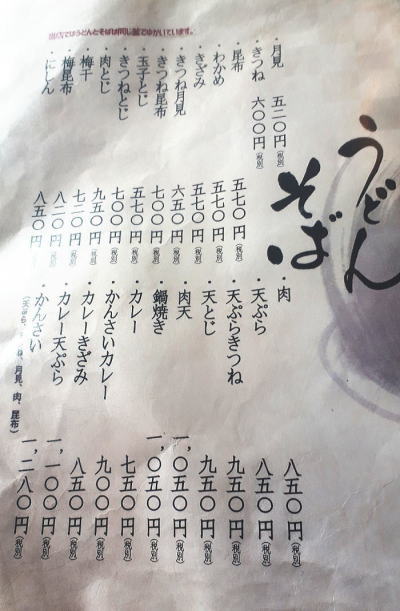 うどん
そば
当店ではうどんとそばは同じ釜でゆがいています。
・月見 五二〇円(税別)
・きつね 六〇〇円(税別)
・昆布 五七〇円(税別)
・わかめ 五七〇円(税別)
・きざみ 五七〇円(税別)
・きつね月見 六五〇円(税別)
・きつね昆布 七〇〇円(税別)
・玉子とじ 五七〇円(税別)
・きつねとじ 七〇〇円(税別)
・肉とじ 九五〇円(税別)
・梅干 七二〇円(税別)
・梅昆布 八二〇円(税別)
・にしん 八五〇円(税別)
・肉 八五〇円(税別)
・天ぷら 八五〇円(税別)
・天ぷらきつね 九五〇円(税別)
・天とじ 九五〇円(税別)
・肉天 一、〇五〇円(税別)
・鍋焼き 一、〇五〇円(税別)
・カレー 七五〇円(税別)
・かんさいカレー 九〇〇円(税別)
・カレーきざみ 八五〇円(税別)
・カレー天ぷら 一、一〇〇円(税別)
・かんさい 一、二八〇円(税別)
(天ぷら、ね、月見、肉、昆布)